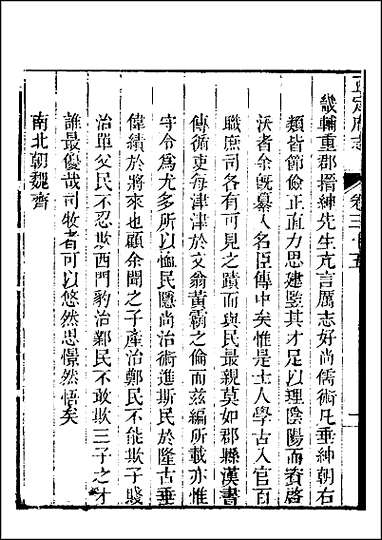 正定府志 卷三十五
畿輔重郡搢紳先生亢言厲志好尚儒術凡垂紳朝右
類皆節儉正直力思建豎其才足以理陰陽而賚啓
沃者余旣纂入名臣傳中矣惟是士人學古入官百
職庶司各有可見之蹟而與民最親莫如郡縣漢書
傳循吏每津津於文翁黃霸之倫而茲編所載亦惟
守令為尤多所以恤民隱尚治術進斯民於隆古垂
偉績於將來也顧余聞之子產治鄭民不能欺子賤
治單父民不忍欺西門豹治鄴民不敢欺三子之才
誰最優哉司牧者可以悠然思憬然悟矣
南北朝魏齊